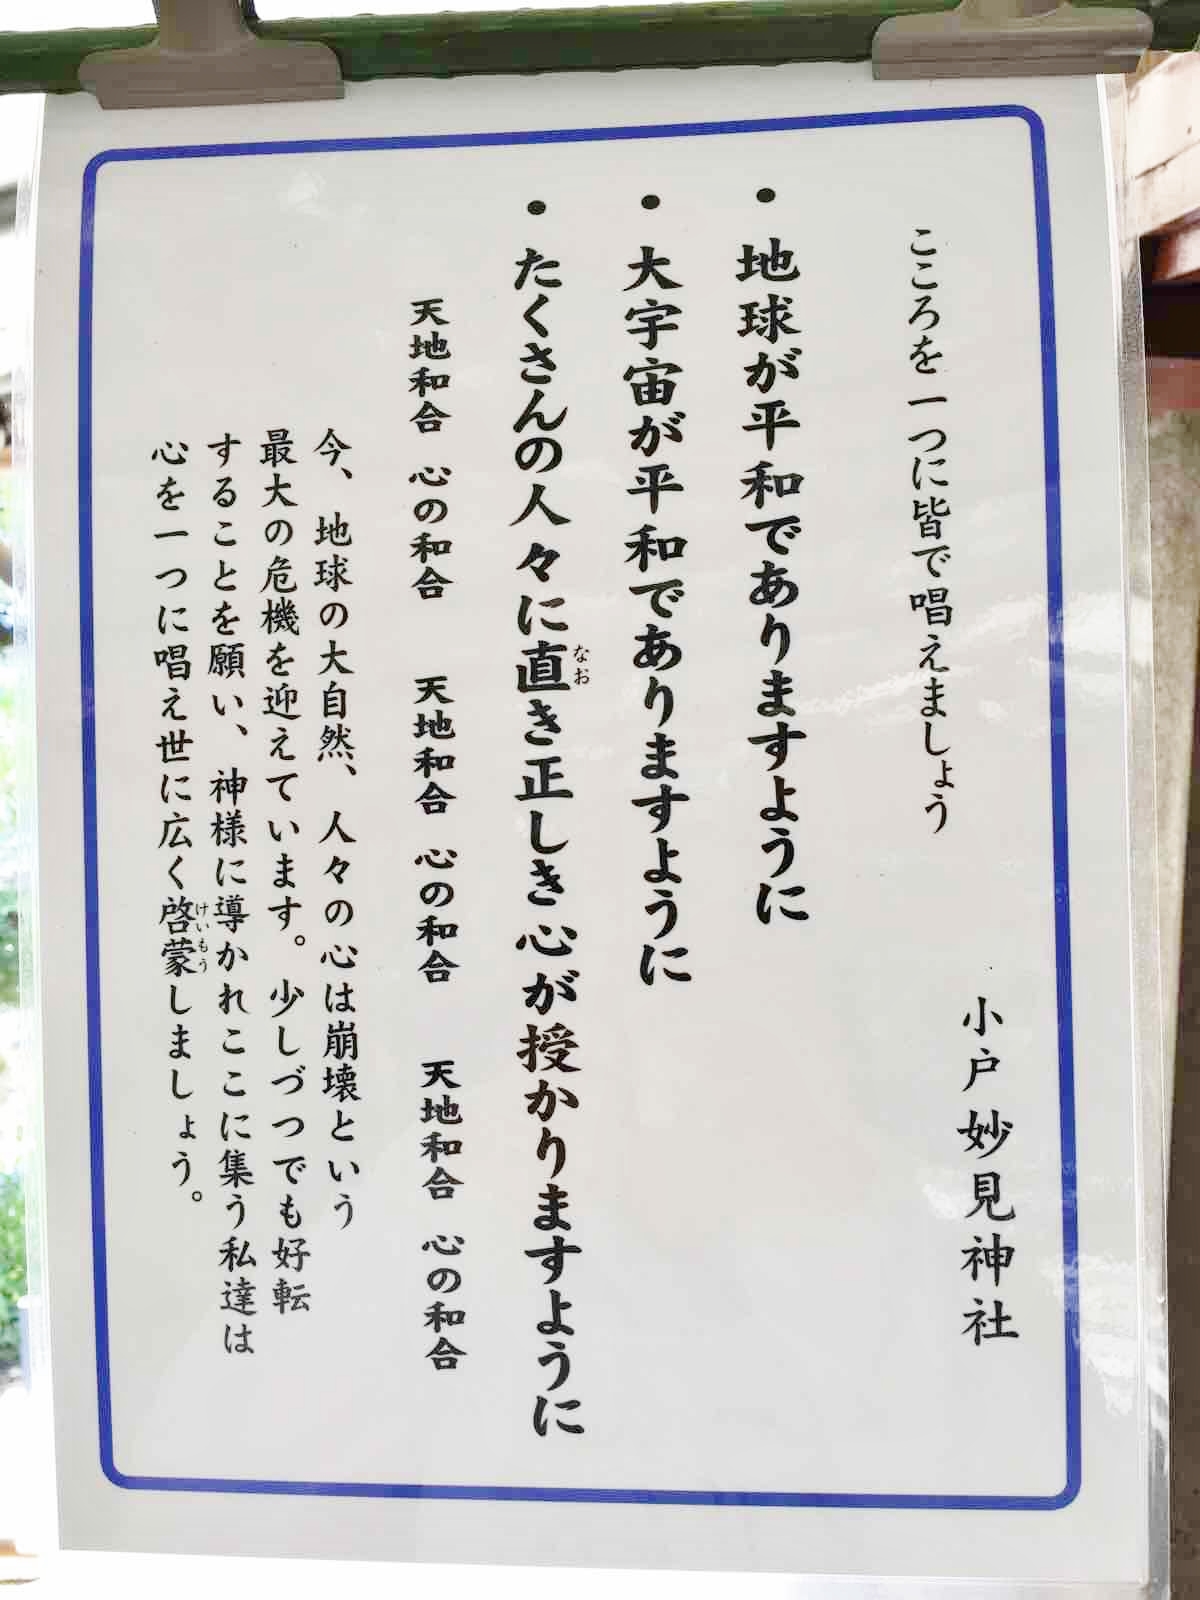 小戸妙見神社
こころを一つに皆で唱えましょう
・地球が平和でありますように
・大宇宙が平和でありますように
・たくさんの人々に直き正しき心が授かりますように
なお
天地和合 心の和合 天地和合 心の和合 天地和合 心の和合
今、地球の大自然、人々の心は崩壊という
最大の危機を迎えています。少しづつでも好転
することを願い、神様に導かれここに集う私達は
心を一つに唱え世に広く啓蒙しましょう。
けいもう